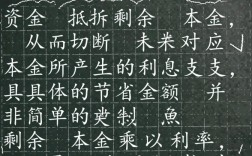 资金 抵拆剩余 本金，
从而切断 未来对应
本金所产生的利息支支，
具具体的节省金额 并
非简单的 制 魚
剩余 本金乘以利率，